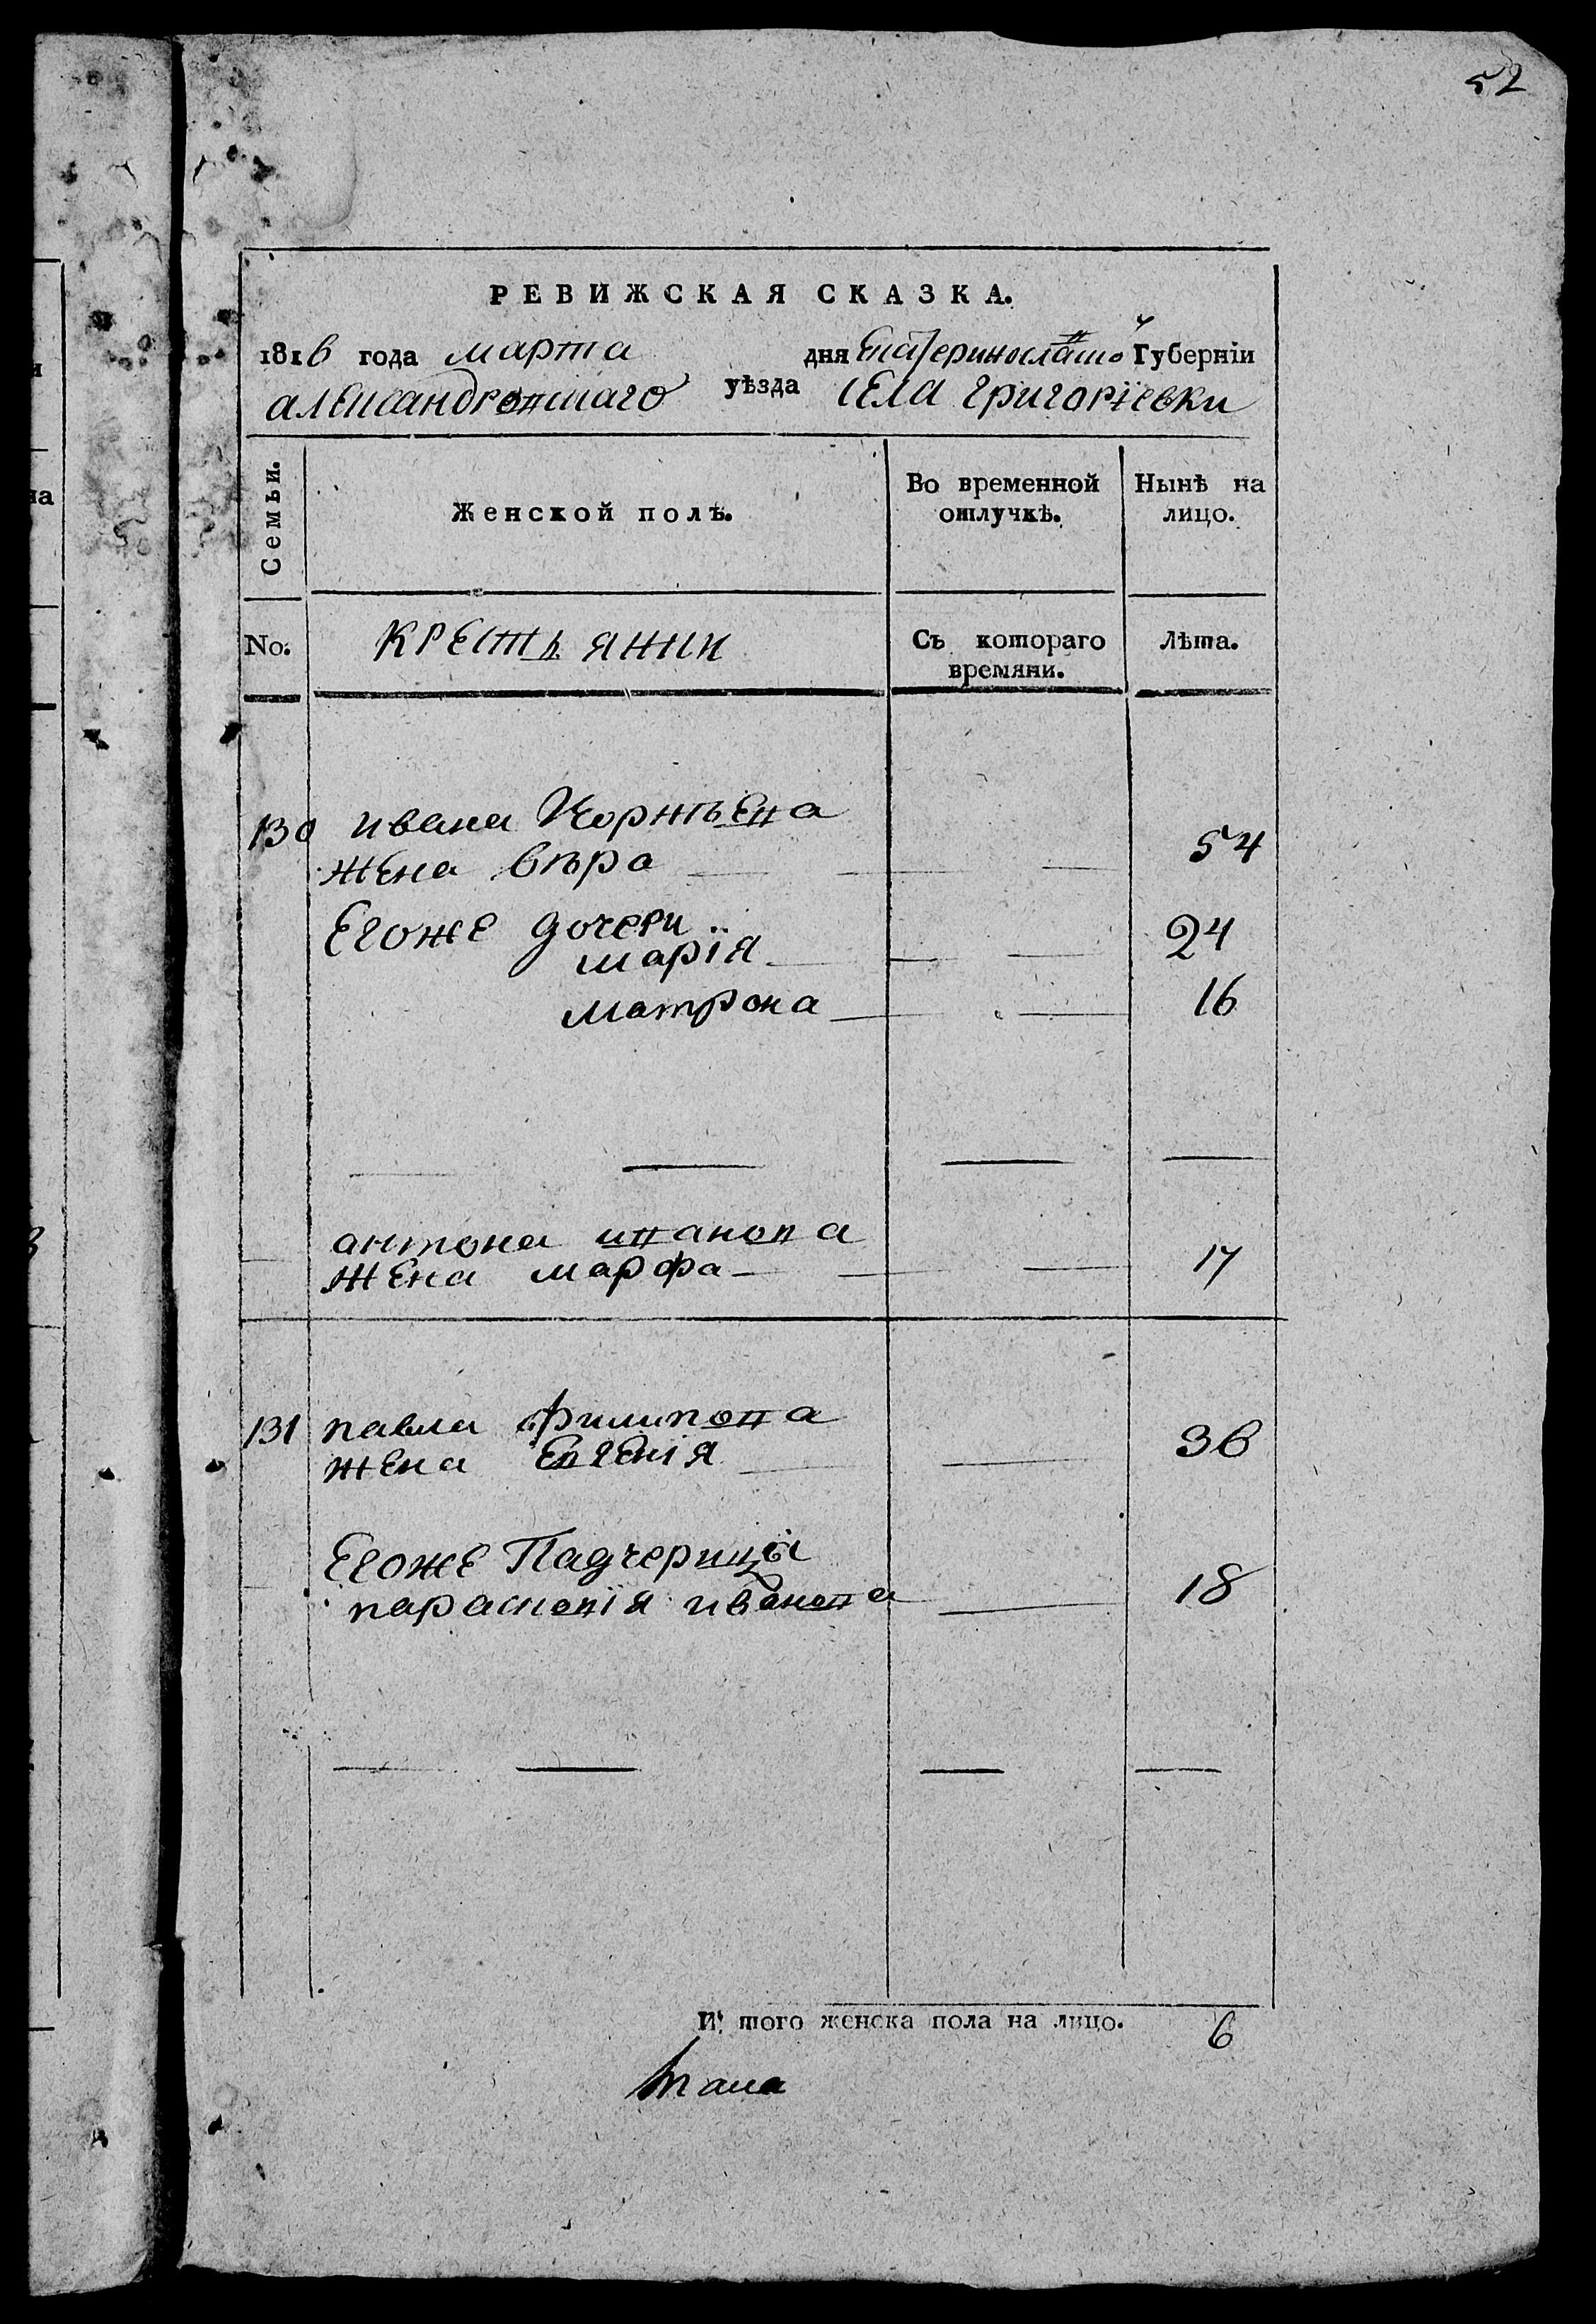 52
РЕВИЖСКАЯ СКАЗКА.
1816 года марта дня Екатеринославской Губерніи
александровскаго уѣзда села григоріевки
Семьи. Женской полъ. Во временной отлучкѣ. Нынѣ на лицо.
No. крестьянки Съ котораго времяни. Лѣта.
130 ивана Корнѣева
жена вѣра 54
Егоже дочери
марія 24
матрона 16
антона иванова
жена марфа 17
131 павла филипова
жена Евгенія 36
Егоже Падчерица
параскевія иванова 18
И того женска пола на лицо. 6